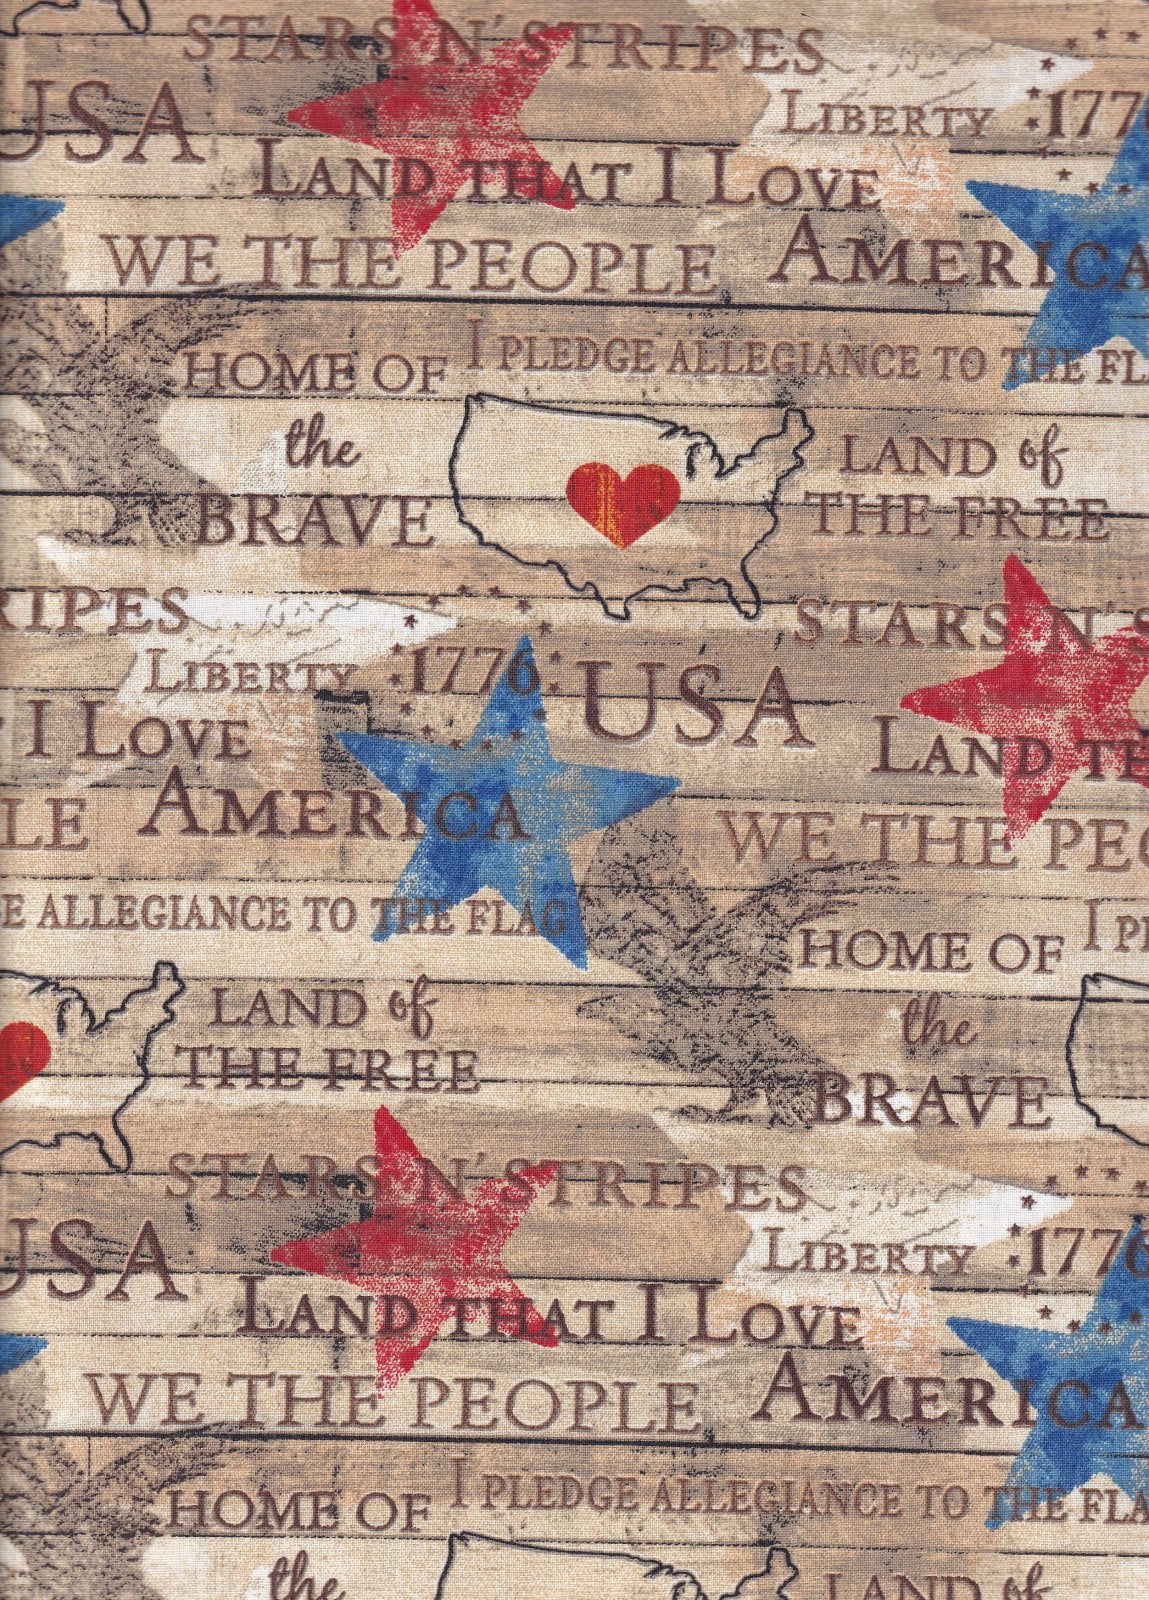 STARS N' STRIPES
USA
LIBERTY 1776
LAND THAT I LOVE
WE THE PEOPLE
AMERICA
I PLEDGE ALLEGIANCE TO THE FL
HOME OF
the
BRAVE
LAND of
THE FREE
RIPES
STARS N' S
LIBERTY 1776
USA
I LOVE
LAND THE
LE
AMERICA
WE THE PEO
E ALLEGIANCE TO THE FLAG
HOME OF
I PL
LAND of
the
THE FREE
BRAVE
STARS N' STRIPES
USA
LIBERTY 1776
LAND THAT I LOVE
WE THE PEOPLE
AMERICA
I PLEDGE ALLEGIANCE TO THE FLA
HOME OF
the
LAND of